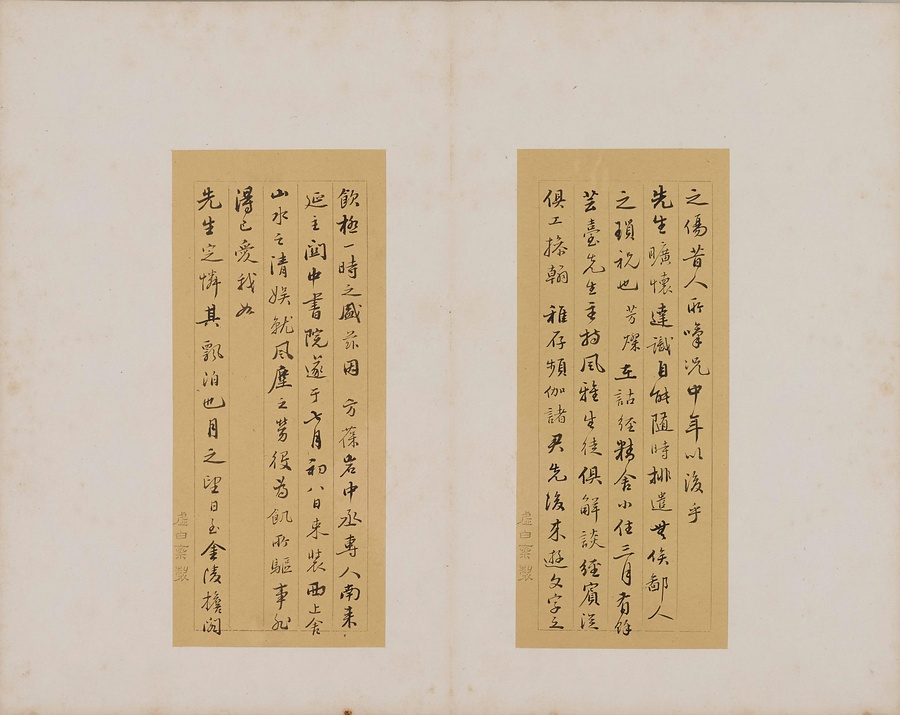 之傷昔人所嘆況中年以後乎
先生曠懷達識自能隨時排遣無俟鄙人
之瑣祝也芳燦在詁經精舍小住三月有餘
芸臺先生主持風雅生徒俱解談經賓從
俱工摛翰稚存頻伽諸君先後來遊文字之
虛白齋製
飲極一時之盛茲因方葆岩中丞專人南來
延主關中書院遂于七月初八日束裝西上舍
山水之清娛就風塵之勞役為飢所驅事非
得已愛我如
先生定憐其飄泊也月之望日至金陵擔閣
虛白齋製